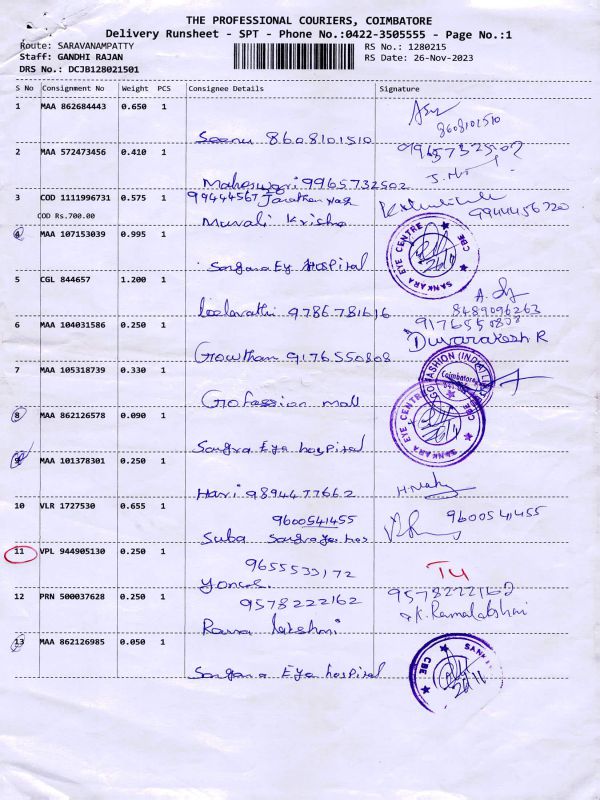 THE PROFESSIONAL COURIERS, COIMBATORE
Delivery Runsheet - SPT - Phone No.:0422-3505555 - Page No.:1
Route: SARAVANAMPATTY
RS No.: 1280215
Staff: GANDHI RAJAN
RS Date: 26-Nov-2023
DRS No.: DCJB128021501
S No Consignment No Weight PCS Consignee Details Signature
1 MAA 862684443 0.650 1
8608101510
Seenu 8608101510
2 MAA 572473456 0.410 1
9965732502
Maheswari 9965732502
3 COD 1111996731 0.575 1 99444567
COD Rs.700.00
9944456720
Murali Krisha
4 MAA 107153039 0.995 1
SANKARA EYE CENTRE CBE
Sangara Ey Hospital
5 CGL 844657 1.200 1
8489096263
Leelavathi 9786781616
9176550808
6 MAA 104031586 0.250 1
Duvarakesh R
Gowtham 9176550808
7 MAA 105318739 0.330 1
GO FASHION (INDIA) LTD
Coimbatore
Gofassion mall
8 MAA 862126578 0.090 1
SANKARA EYE CENTRE CBE
Sangra Eye hospital
9 MAA 101378301 0.250 1
Hari 9894477662
10 VLR 1727530 0.655 1
9600541455
9600541455
Suba Sangraye hos
11 VPL 944905130 0.250 1
9655533172
12 PRN 500037628 0.250 1
9578222162
9578222162
K. Ramalakshmi
Rama lakshmi
13 MAA 862126985 0.050 1
SANK
CBE
Sangara Eye hospital